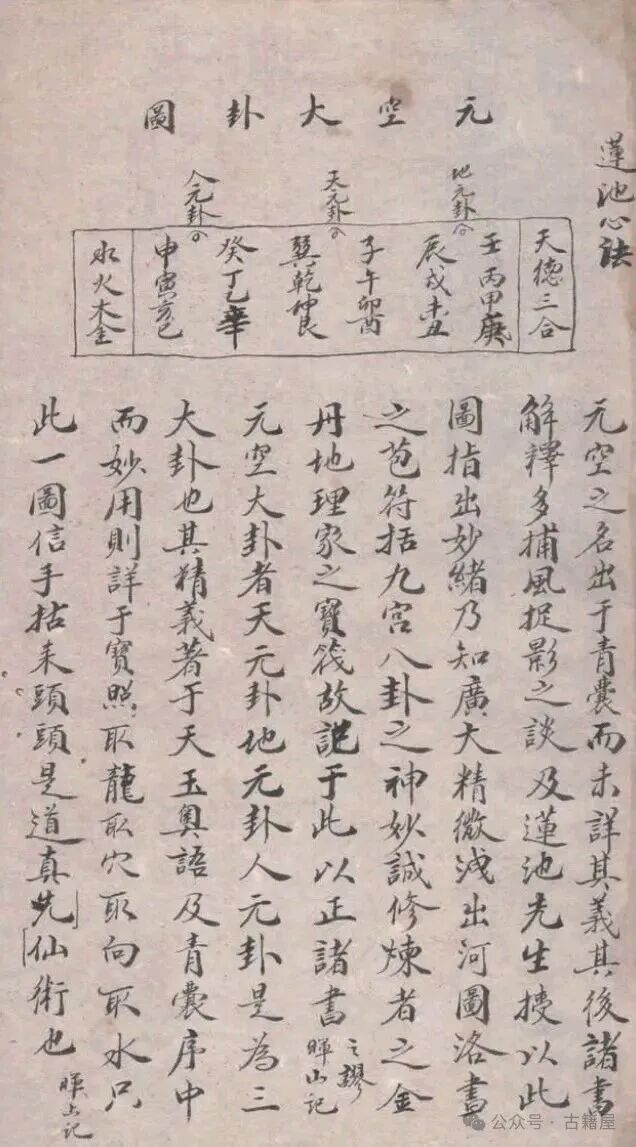 蓮池心法
元空大卦圖
地元卦合
天元卦合
人元卦合
天德三合
壬丙甲庚
辰戌未丑
子午卯酉
巽乾坤艮
癸丁乙辛
申寅亥巳
水火木金
元空之名出于青囊而未詳其義其後諸書
解釋多捕風捉影之談及蓮池先生授以此
圖指出妙緒乃知廣大精微洩出河圖洛書
之苞符括九宮八卦之神妙誠修煉者之金
丹地理家之寶筏故記于此以正諸書之謬 暉山記
元空大卦者天元卦地元卦人元卦是為三
大卦也其精義著于天玉奧語及青囊序中
而妙用則詳于寶照取龍取穴取向取水只
此一圖信手拈来頭頭是道真先仙術也 暉山记
公众号·古籍屋